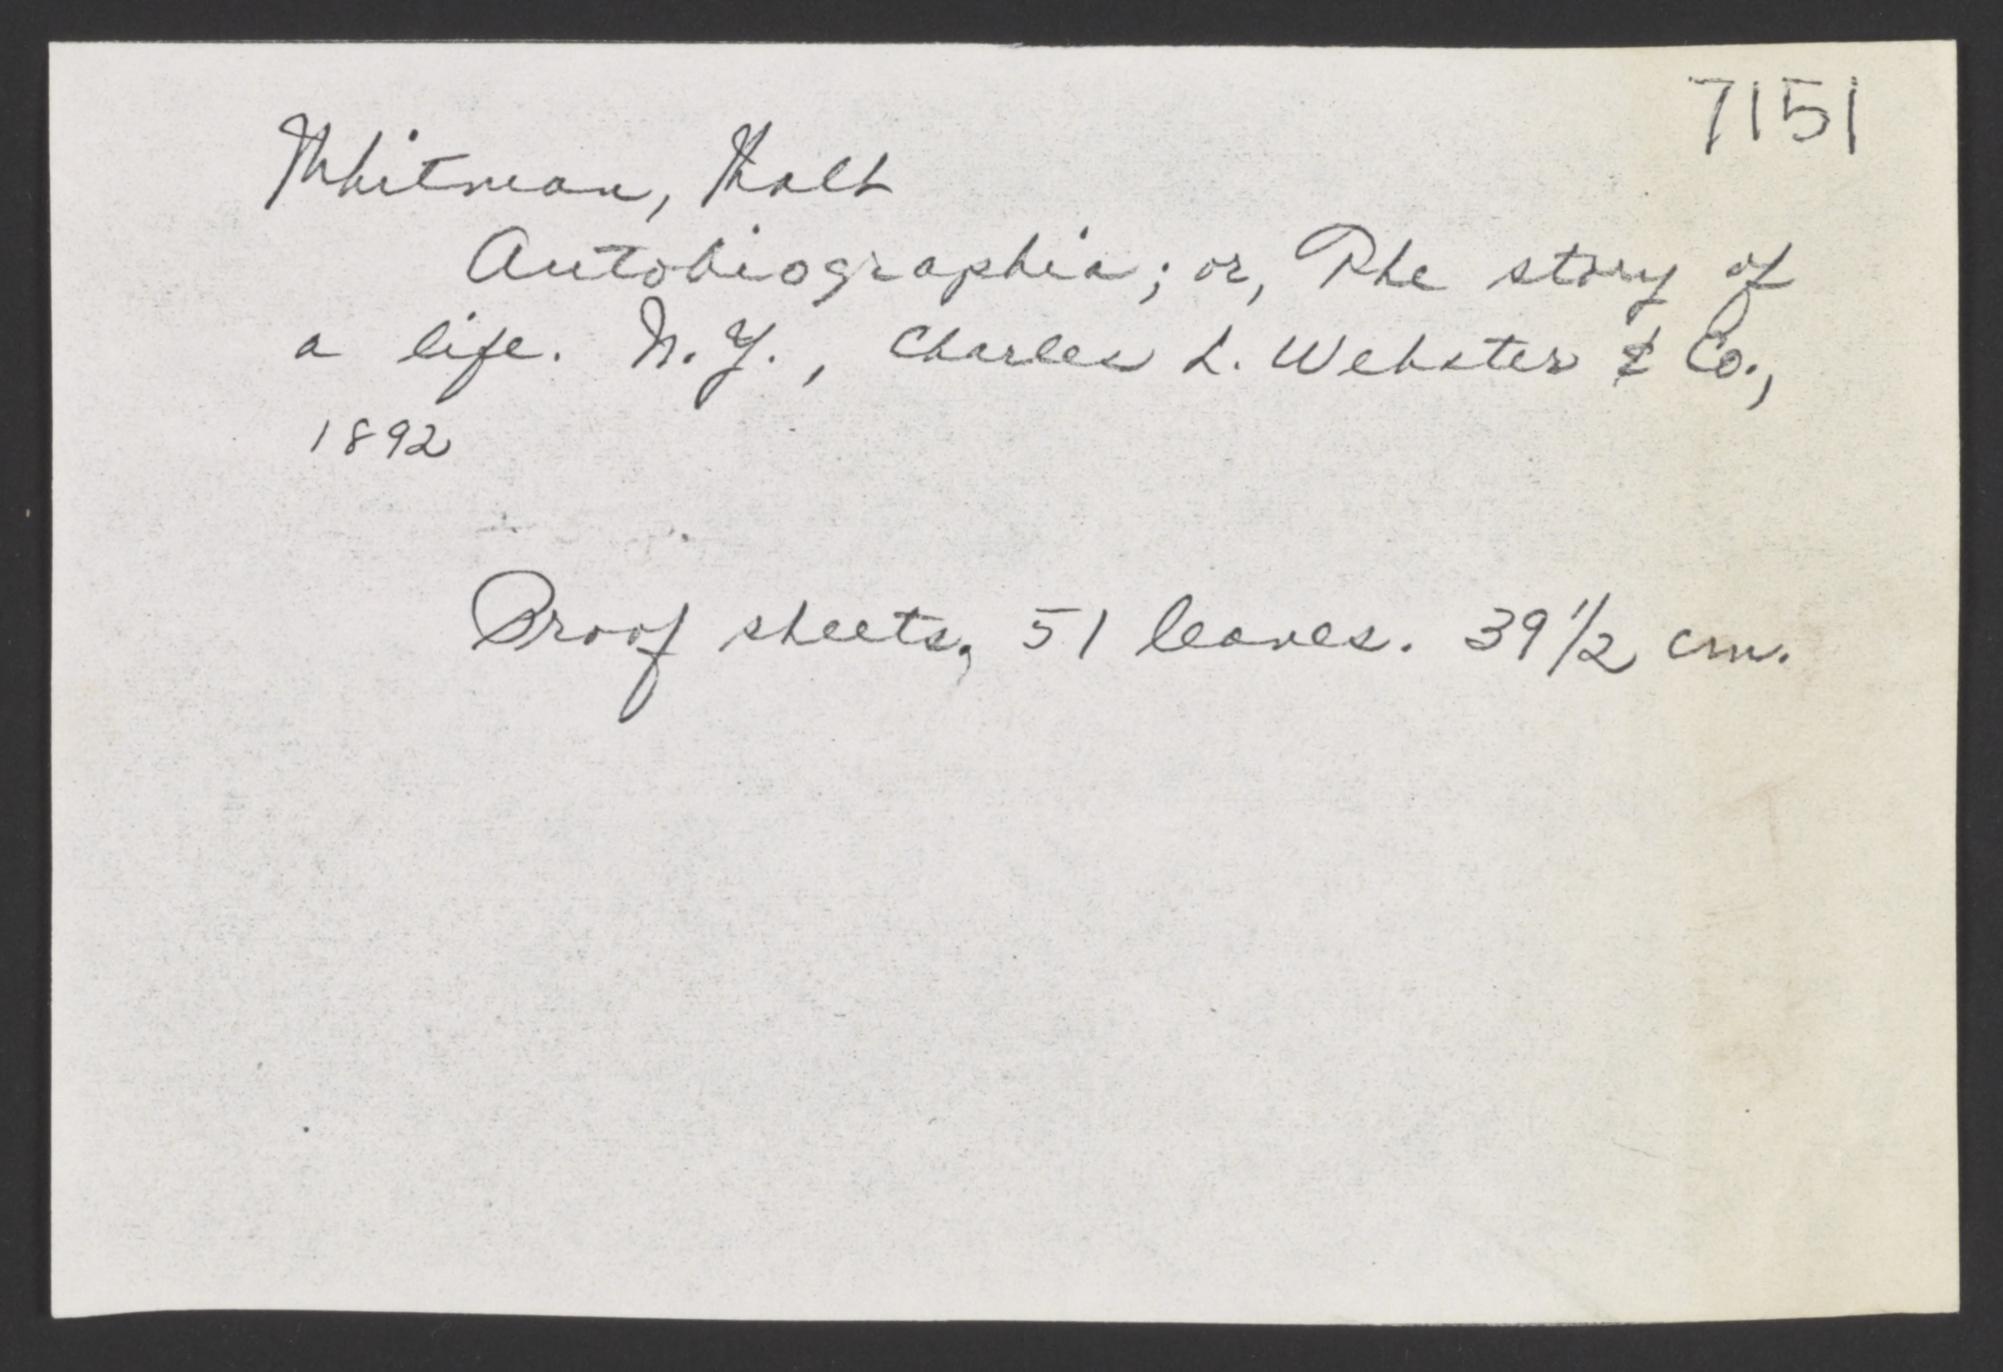 7151
Whitman, Walt
Autobiographia; or, The story of
a life. N.Y., Charles L. Webster & Co.,
1892
Proof sheets, 51 leaves. 39 1/2 cm.